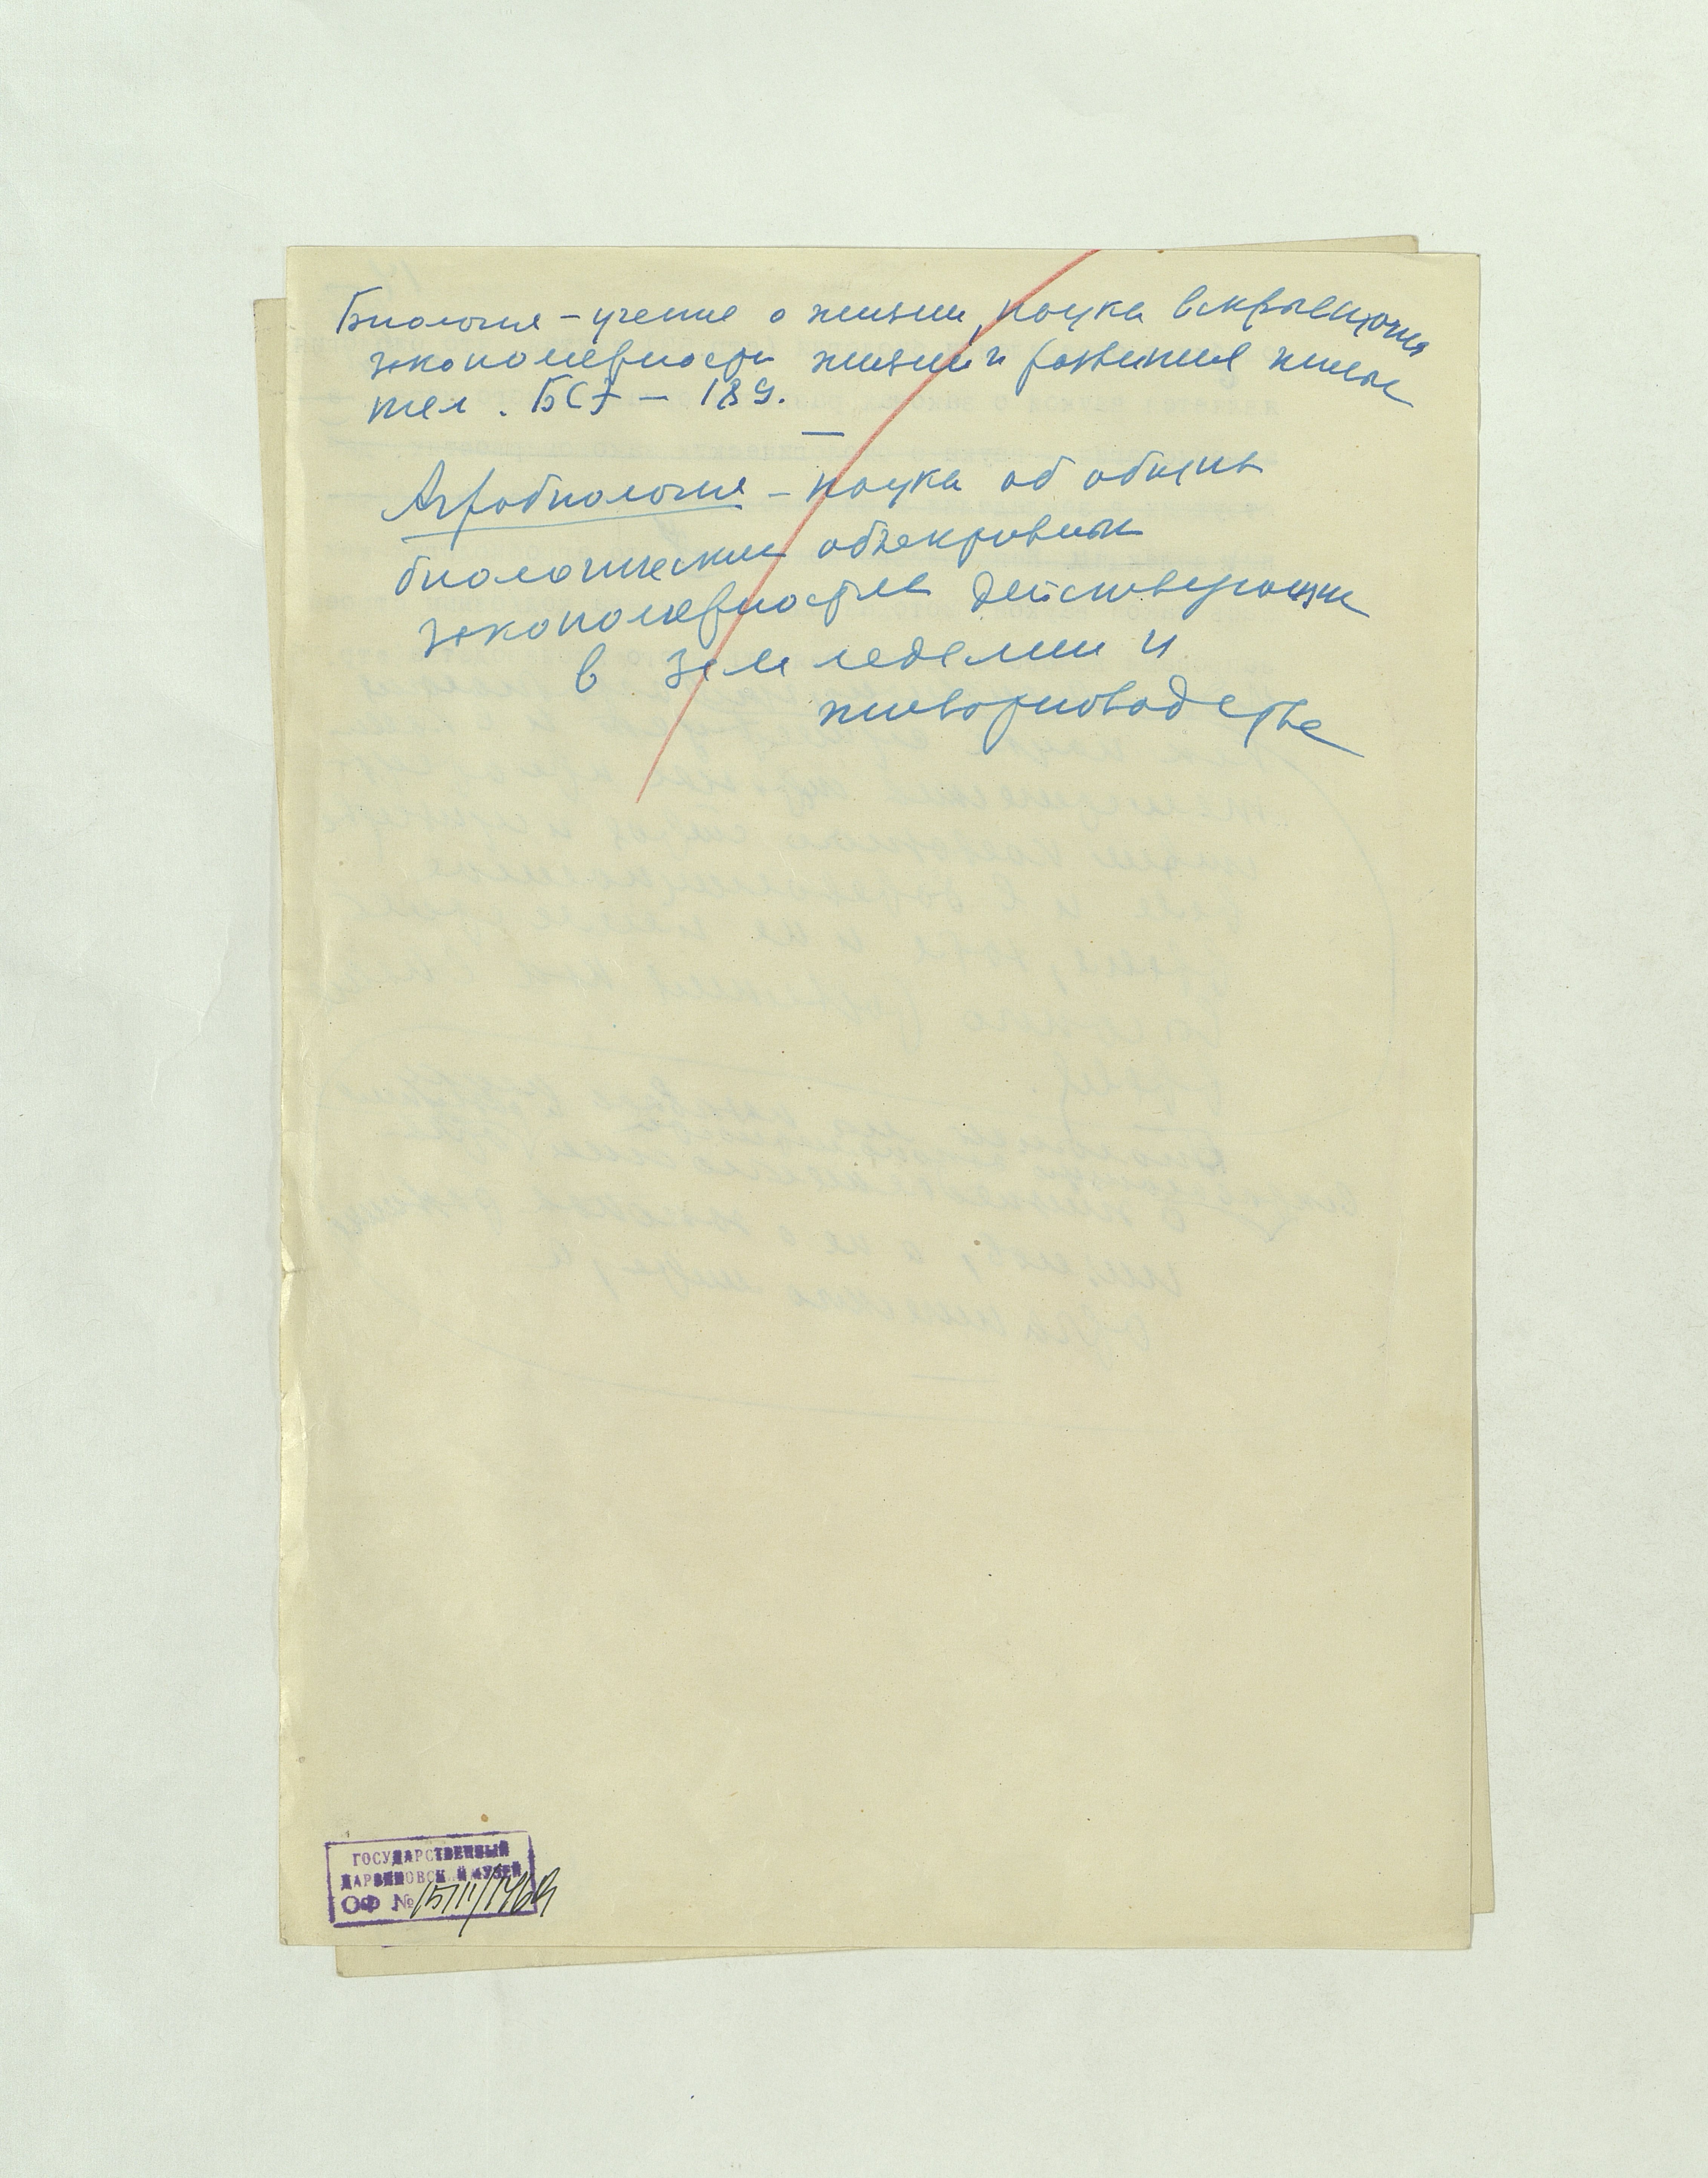 Биология – учение о жизни, наука вскрывающая
закономерности жизни и развития живых
тел. БСЭ – 189.
Агробиология – наука об общих
биологических объективных
закономерностях действующих
в земледелии и
животноводстве
ГОСУДАРСТВЕННЫЙ
ДАРВИНОВСКИЙ МУЗЕЙ
ОФ №